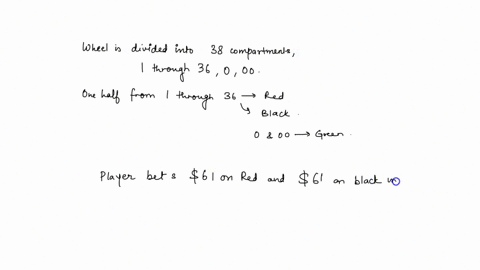 Wheel is divided into 38 compartments,
1 through 36, 0, 00.
One half from 1 through 36 → Red
↘ Black.
0 & 00 → Green.
Player bets $61 on Red and $61 on black